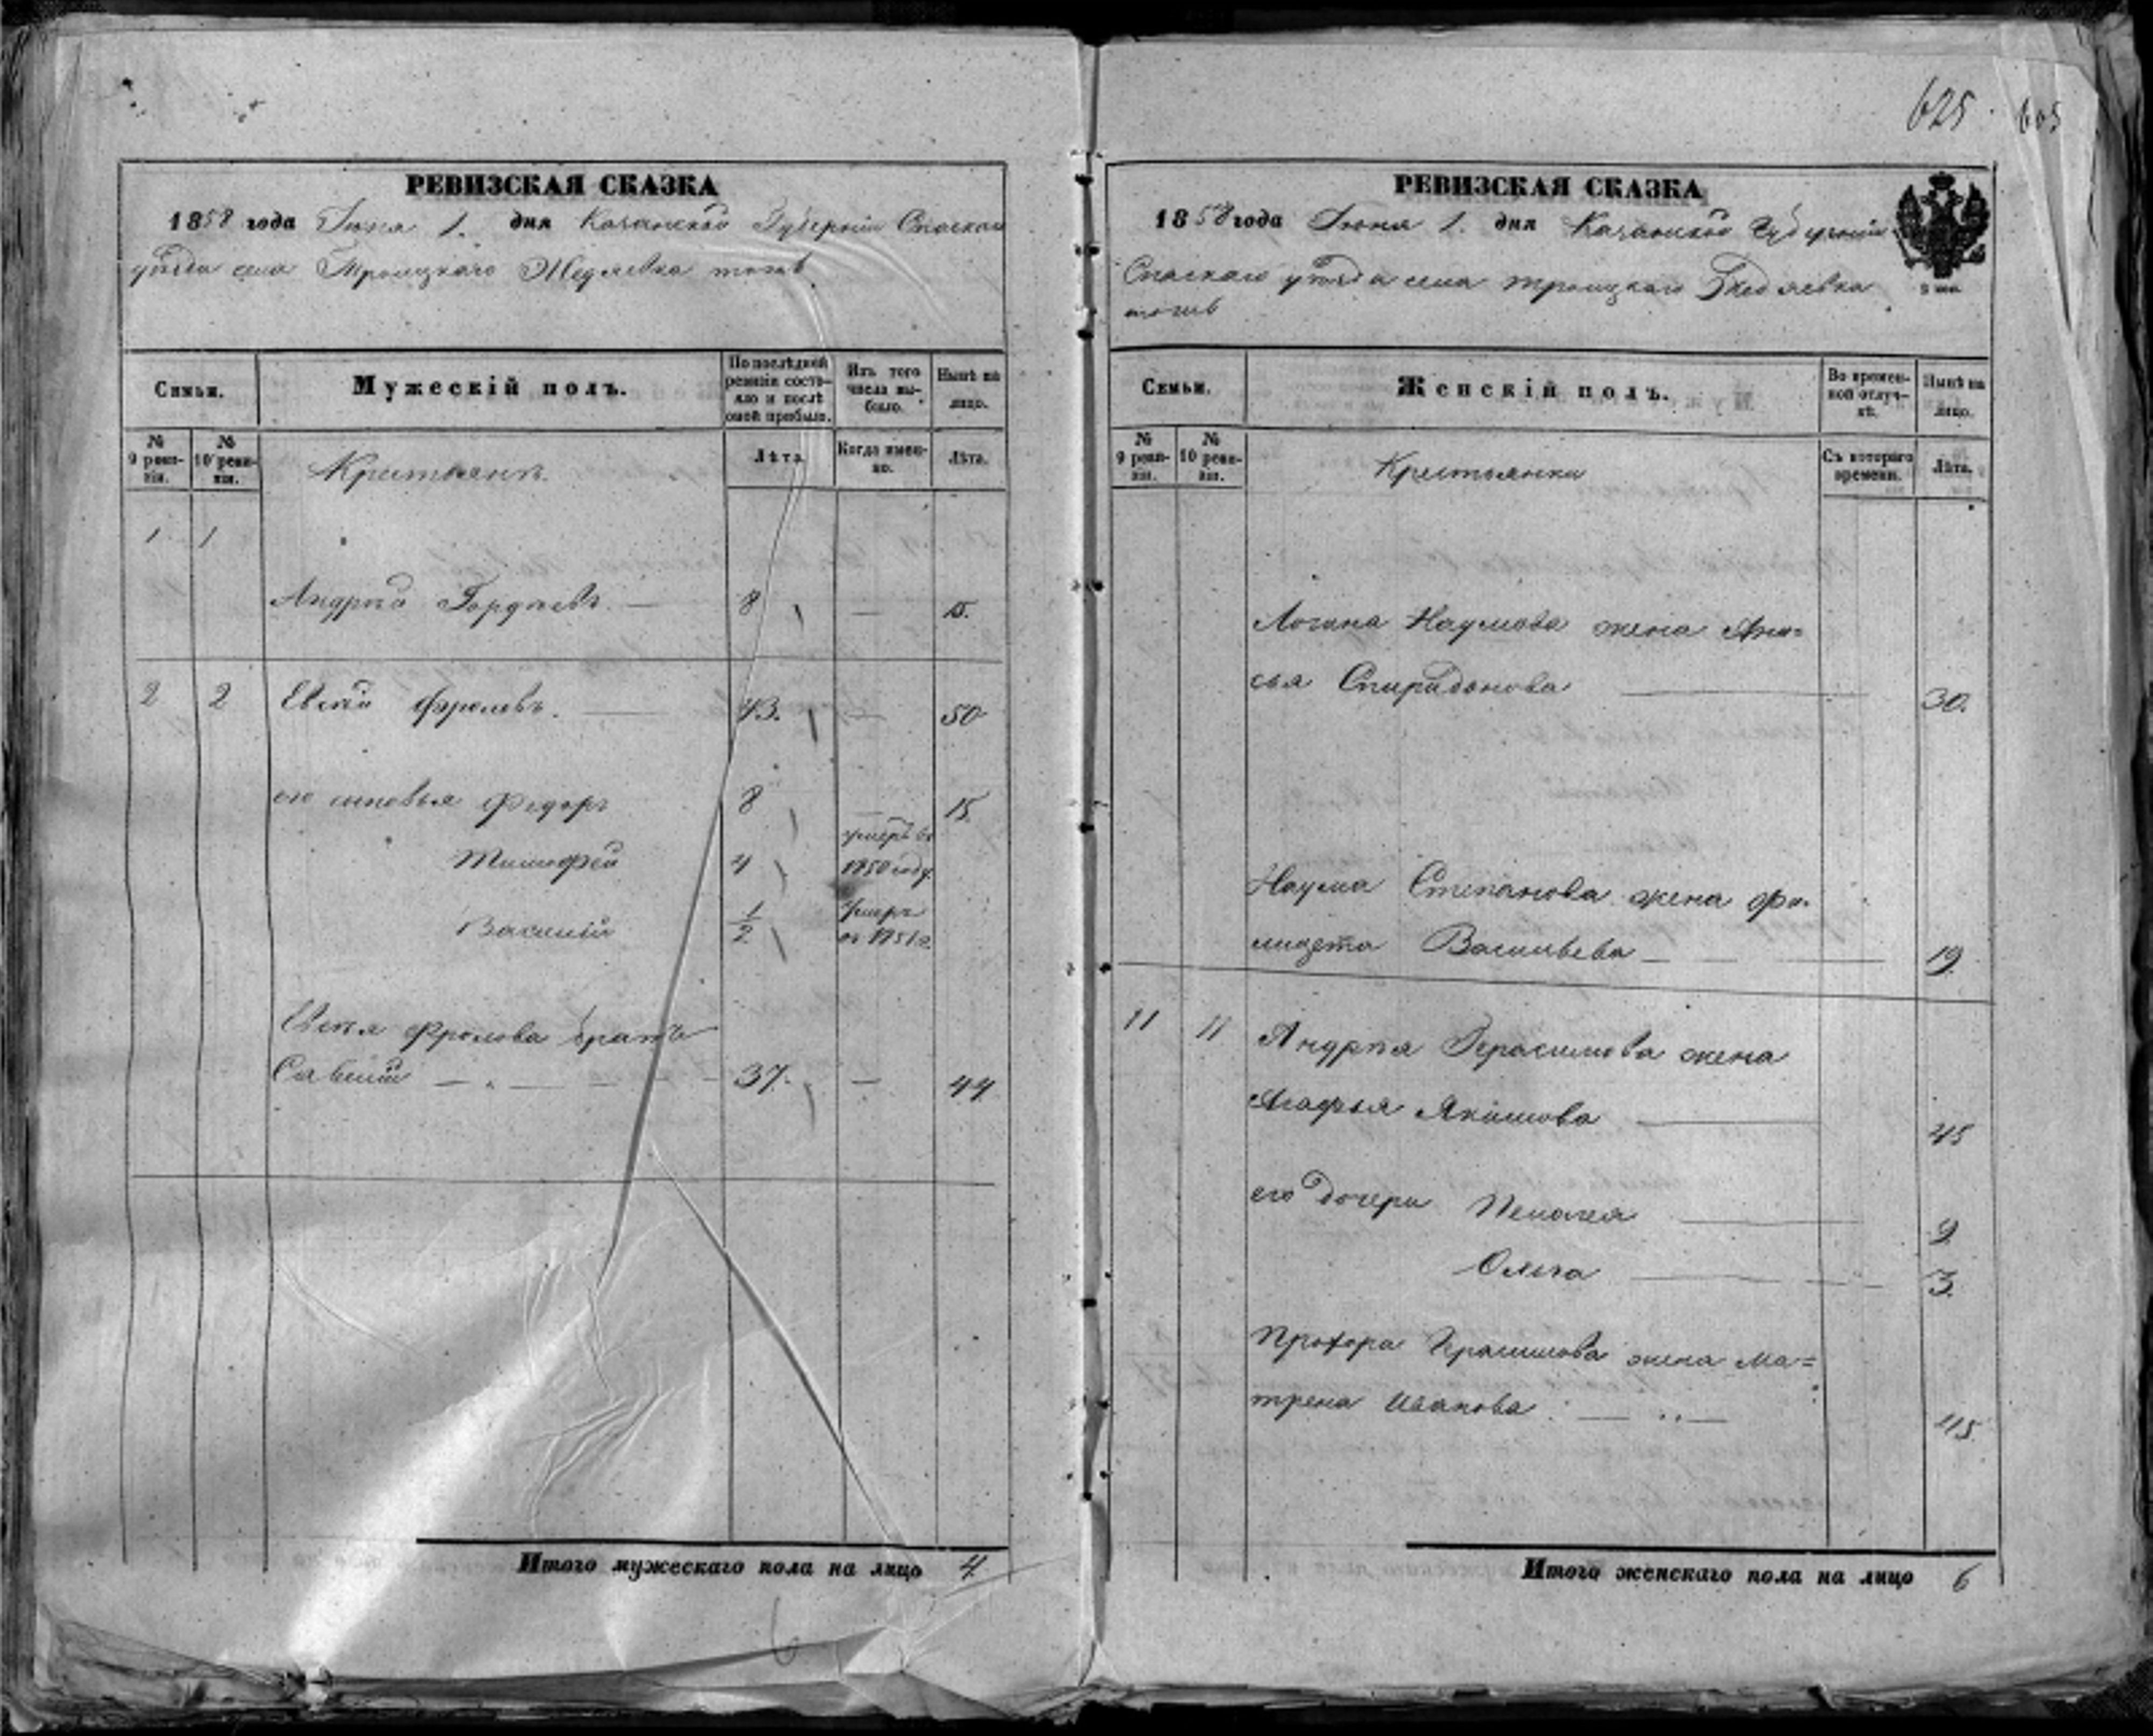 625. 605
РЕВИЗСКАЯ СКАЗКА
1858 года Июня 1. дня Казанской Губерніи Спаскаго
уѣзда села Троицкаго Жедяевка тожъ
Семьи.
Мужескій полъ.
По послѣдней ревизіи состояло и послѣ оной прибыло.
Изъ того числа выбыло.
Нынѣ на лицо.
№ 9 ревизіи.
№ 10 ревизіи.
Крестьянъ.
Лѣта.
Когда именно.
Лѣта.
1 1
Андрей Гордѣевъ. — 8 — 15.
2 2 Евсѣй Фроловъ. — 43. — 50
его сыновья Федоръ 8 — 15
умеръ въ
Тимофей 4 1850 году.
Василій 1/2 Умеръ
въ 1851 г.
Евсѣя Фролова братъ
Савелій — 37. — 44
Итого мужескаго пола на лицо 4
РЕВИЗСКАЯ СКАЗКА
1858 года Июня 1. дня Казанской Губерніи
Спаскаго уѣзда села Троицкаго Жедяевка
тожъ
Семьи.
Женскій полъ.
Во временной отлучкѣ.
Нынѣ на лицо.
№ 9 ревизіи.
№ 10 ревизіи.
Крестьянки
Съ котораго времени.
Лѣта.
Логина Наумова жена Ани=
сья Спиридонова — 30.
Наума Степанова жена Фи-
лицета Васильева — 19.
11 11 Андрея Герасимова жена
Агафья Якимова — 45
его дочери Пелагея — 9
Ольга — 3.
Прохора Герасимова жена Ма=
трена Иванова — 45.
Итого женскаго пола на лицо 6